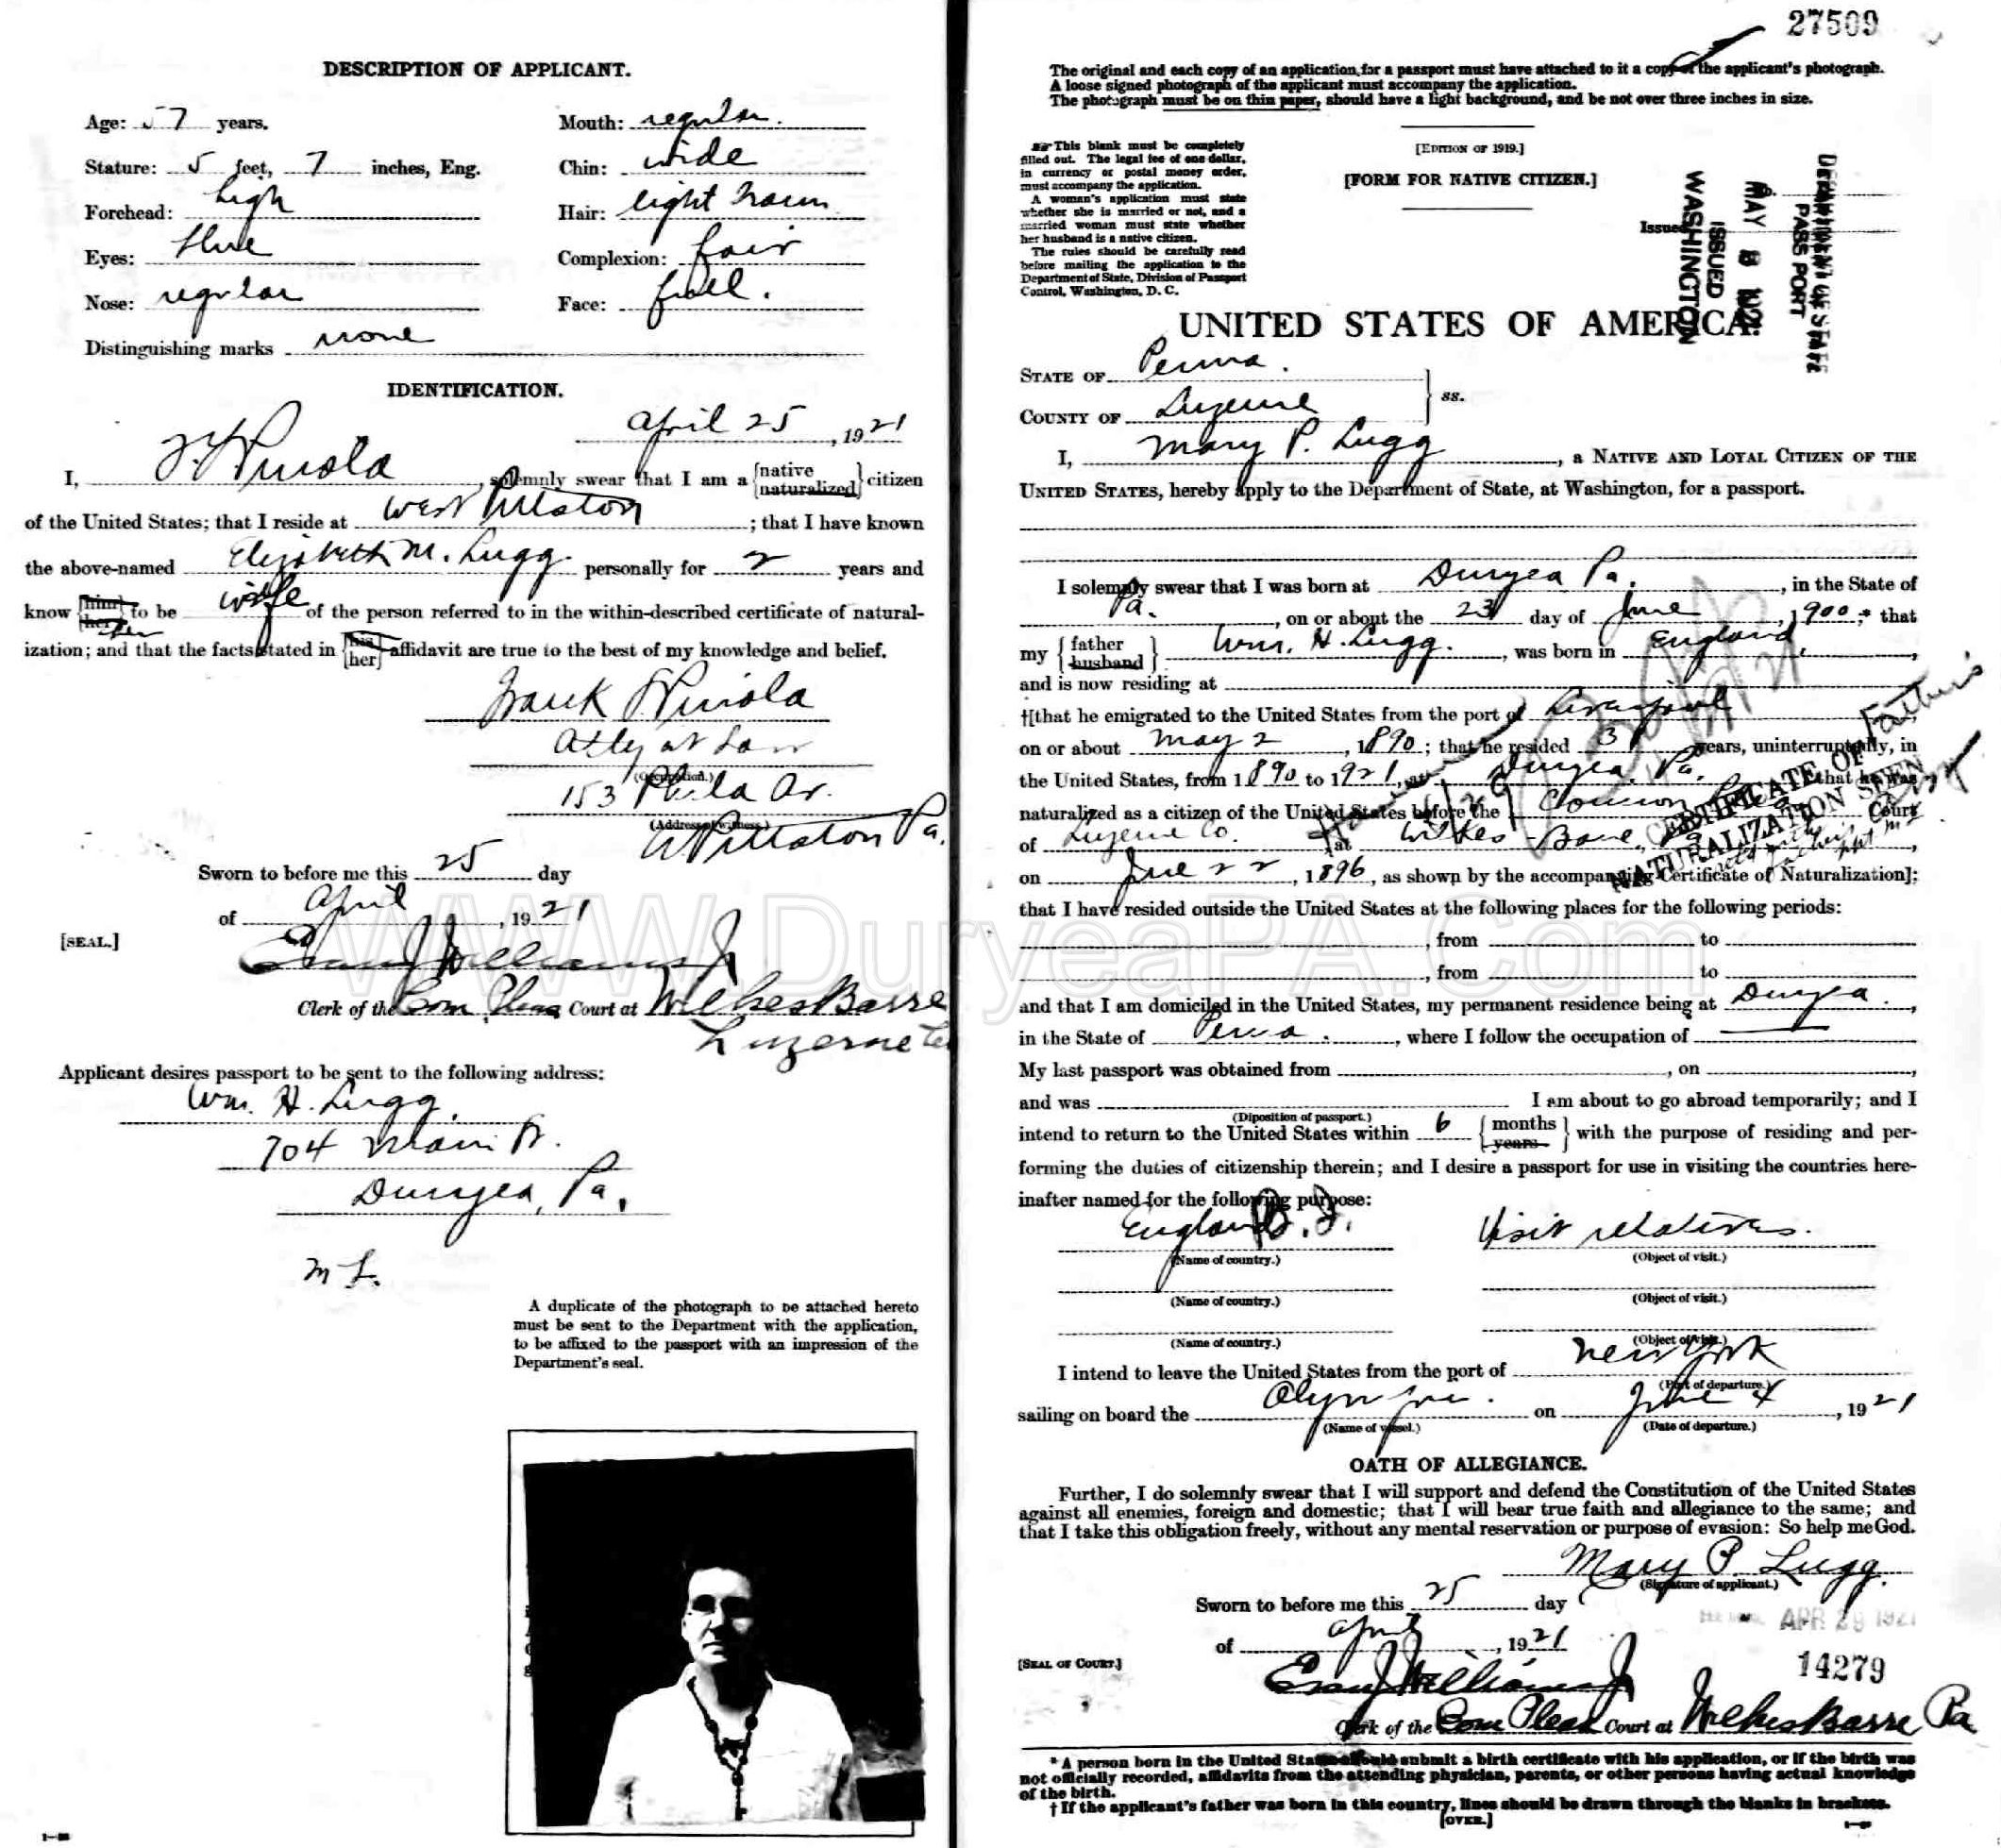 DESCRIPTION OF APPLICANT.
Age: 57 years.
Mouth: regular.
Stature: 5 feet, 7 inches, Eng.
Chin: wide
Forehead: high
Hair: light brown
Eyes: blue
Complexion: fair
Nose: regular
Face: full.
Distinguishing marks none
IDENTIFICATION.
April 25, 1921
I, , solemnly swear that I am a {native naturalized} citizen
of the United States; that I reside at West Pittston; that I have known
the above-named Elizabeth M. Lugg. personally for 2 years and
know {him her} to be wife of the person referred to in the within-described certificate of natural-
ization; and that the facts stated in {his her} affidavit are true to the best of my knowledge and belief.
Frank
Atty at Law
(Occupation.)
153 Phila Av.
(Address of witness.)
W Pittston Pa.
Sworn to before me this 25 day
of April, 1921
[SEAL.]
Evan J Williams Jr
Clerk of the Com Pleas Court at Wilkes Barre
Luzerne Co
Applicant desires passport to be sent to the following address:
Wm. H. Lugg.
704 Main St.
Duryea, Pa.
M L.
A duplicate of the photograph to be attached hereto
must be sent to the Department with the application,
to be affixed to the passport with an impression of the
Department's seal.
27509
The original and each copy of an application for a passport must have attached to it a copy of the applicant's photograph.
A loose signed photograph of the applicant must accompany the application.
The photograph must be on thin paper, should have a light background, and be not over three inches in size.
This blank must be completely
filled out. The legal fee of one dollar,
in currency or postal money order,
must accompany the application.
A woman's application must state
whether she is married or not, and a
married woman must state whether
her husband is a native citizen.
The rules should be carefully read
before mailing the application to the
Department of State, Division of Passport
Control, Washington, D. C.
[EDITION OF 1919.]
[FORM FOR NATIVE CITIZEN.]
No.
Issued
DEPARTMENT OF STATE
PASSPORT
MAY 3 1921
ISSUED
WASHINGTON
UNITED STATES OF AMERICA.
STATE OF Penna.
COUNTY OF Luzerne
ss.
I, Mary P. Lugg, a NATIVE AND LOYAL CITIZEN OF THE
UNITED STATES, hereby apply to the Department of State, at Washington, for a passport.
I solemnly swear that I was born at Duryea Pa., in the State of
Pa., on or about the 23 day of June, 1900;* that
my {father husband} Wm. H. Lugg., was born in England,
and is now residing at
†[that he emigrated to the United States from the port of Liverpool
on or about May 2, 1890; that he resided 31 years, uninterruptedly, in
the United States, from 1890 to 1921, at Duryea, Pa. that he was
naturalized as a citizen of the United States before the Common Pleas Court
of Luzerne Co. at Wilkes-Barre, Pa,
on June 22, 1896, as shown by the accompanying Certificate of Naturalization];
Father's
CERTIFICATE OF
NATURALIZATION SEEN
that I have resided outside the United States at the following places for the following periods:
, from to
, from to
and that I am domiciled in the United States, my permanent residence being at Duryea.,
in the State of Penna., where I follow the occupation of
My last passport was obtained from , on ,
and was I am about to go abroad temporarily; and I
(Diposition of passport.)
intend to return to the United States within 6 {months years} with the purpose of residing and per-
forming the duties of citizenship therein; and I desire a passport for use in visiting the countries here-
inafter named for the following purpose:
England B.I. Visit relatives.
(Name of country.) (Object of visit.)
(Name of country.) (Object of visit.)
(Name of country.) (Object of visit.)
I intend to leave the United States from the port of New York
(Port of departure.)
sailing on board the Olympic. on June 4, 1921
(Name of vessel.) (Date of departure.)
OATH OF ALLEGIANCE.
Further, I do solemnly swear that I will support and defend the Constitution of the United States
against all enemies, foreign and domestic; that I will bear true faith and allegiance to the same; and
that I take this obligation freely, without any mental reservation or purpose of evasion: So help me God.
Mary P. Lugg.
(Signature of applicant.)
Sworn to before me this 25 day
of April, 1921
APR 29 1921
[SEAL OF COURT.]
14279
Evan J Williams Jr
Clerk of the Com Pleas Court at Wilkes Barre Pa
* A person born in the United States should submit a birth certificate with his application, or if the birth was
not officially recorded, affidavits from the attending physician, parents, or other persons having actual knowledge
of the birth.
† If the applicant's father was born in this country, lines should be drawn through the blanks in brackets.
[OVER.]
WWW.DuryeaPA.Com